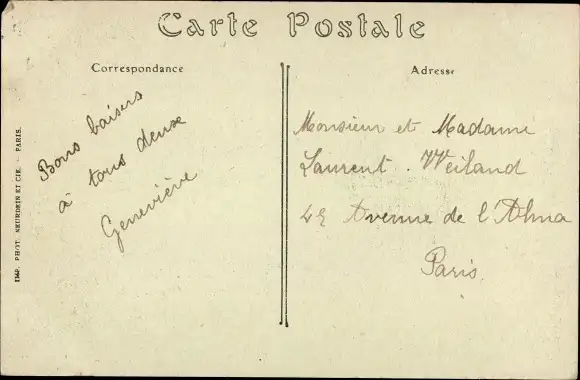 Carte Postale
Correspondance
Adresse
Bons baisers
à tous deux
Geneviève
Monsieur et Madame
Laurent. Weiland
Avenue de l'Alma
Paris.
IMP. PHOT. NEURDEIN ET CIE. - PARIS.